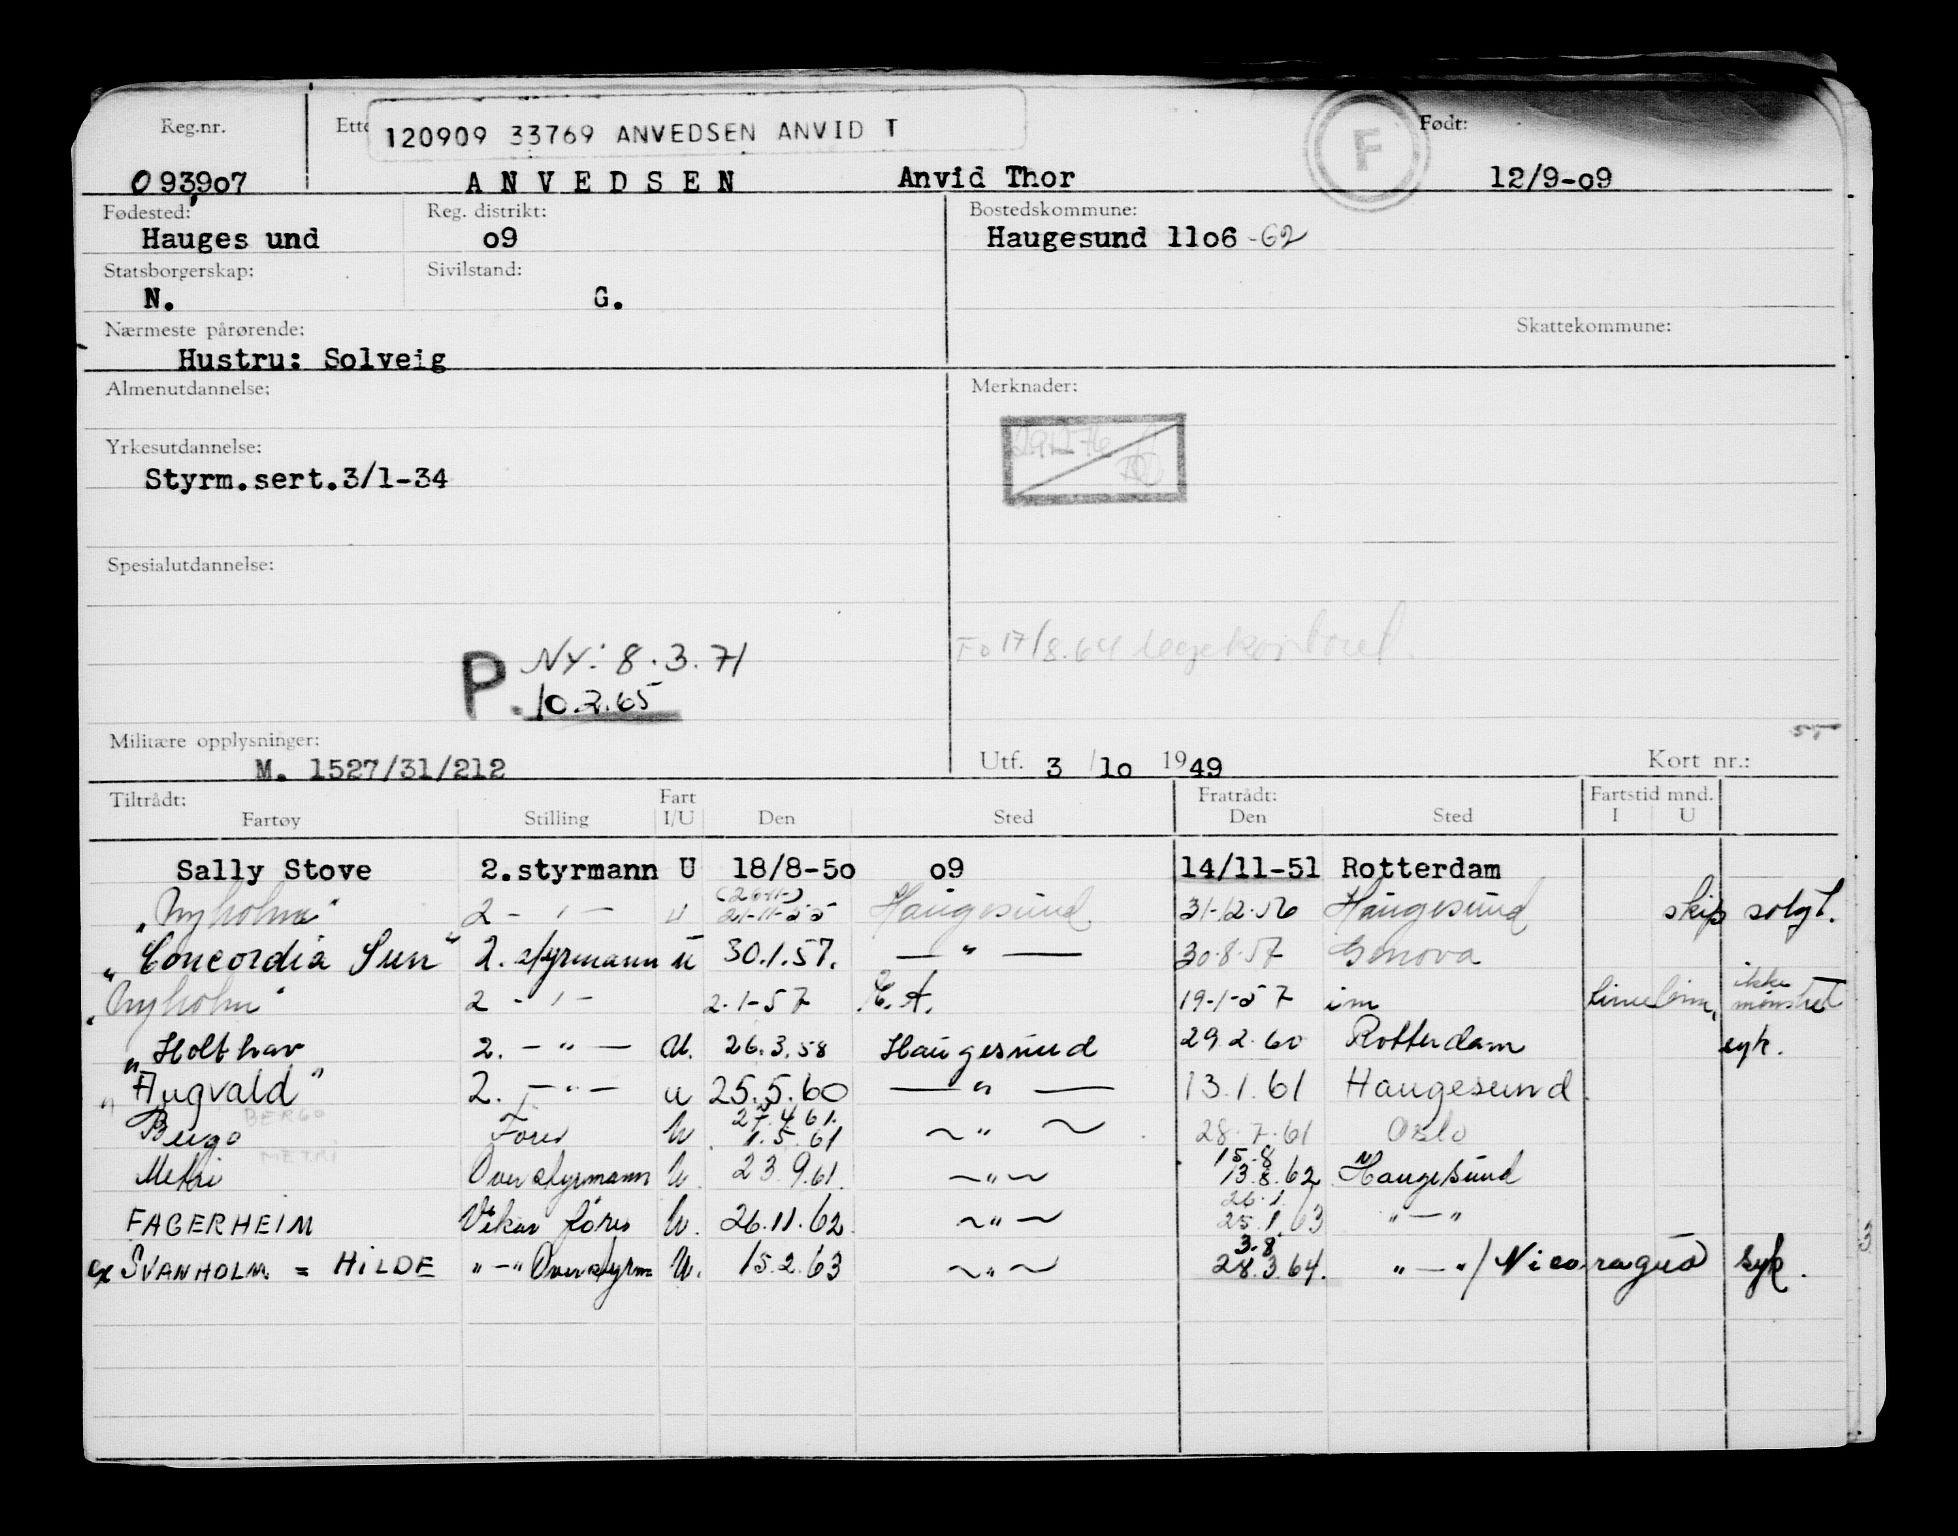 Reg.nr. Ette 120909 33769 ANVEDSEN ANVID T F Født:
093907 ANVEDSEN Anvid Thor 12/9-o9
Fødested: Reg. distrikt: Bostedskommune:
Hauges und o9 Haugesund 11o6 -62
Statsborgerskap: Sivilstand:
N. G.
Nærmeste pårørende: Skattekommune:
Hustru: Solveig
Almenutdannelse: Merknader:
Yrkesutdannelse:
Styrm.sert.3/1-34
Spesialutdannelse:
Fo 17/8.64 legekontoret.
P NY: 8.3.71
10.2.65
Militære opplysninger: 55
M. 1527/31/212 Utf. 3 / 1o 1949 Kort nr.:
Tiltrådt: Fart Fratrådt: Fartstid mnd.
Fartøy Stilling I/U Den Sted Den Sted I U
Sally Stove 2.styrmann U 18/8-5o o9 14/11-51 Rotterdam
(26-11-)
"Nyholm" 2 - " - u 21-11-55 Haugesund 31-12-56 Haugesund skip solgt.
"Concordia Sun" 2. styrmann u 30.1.57. — " — 30.8.57 Genova
"Nyholm" 2 - " - 2.1-57 19-1-57 im ikke mønstret
"Holthav 2. - " - U. 26.3.58 Haugesund 29.2.60 Rotterdam syk.
"Augvald" 2. - " - u 25.5.60 — " — 13.1.61 Haugesund
BERGO 27.4.61.
Bergo Fører U. 1.5.61 ~ " ~ 28.7.61 Oslo
METRI 15.8
Metri Overstyrmann U. 23.9.61. ~ " ~ 13.8.62 Haugesund
26.1.
FAGERHEIM Vikar fører U. 26.11.62. ~ " ~ 25.1.63 " — "
3.8.
ex SVANHOLM = HILDE " - " Overstyrm U. 15.2.63 ~ " ~ 28.3.64. " — " / Nicaragua syk.
3